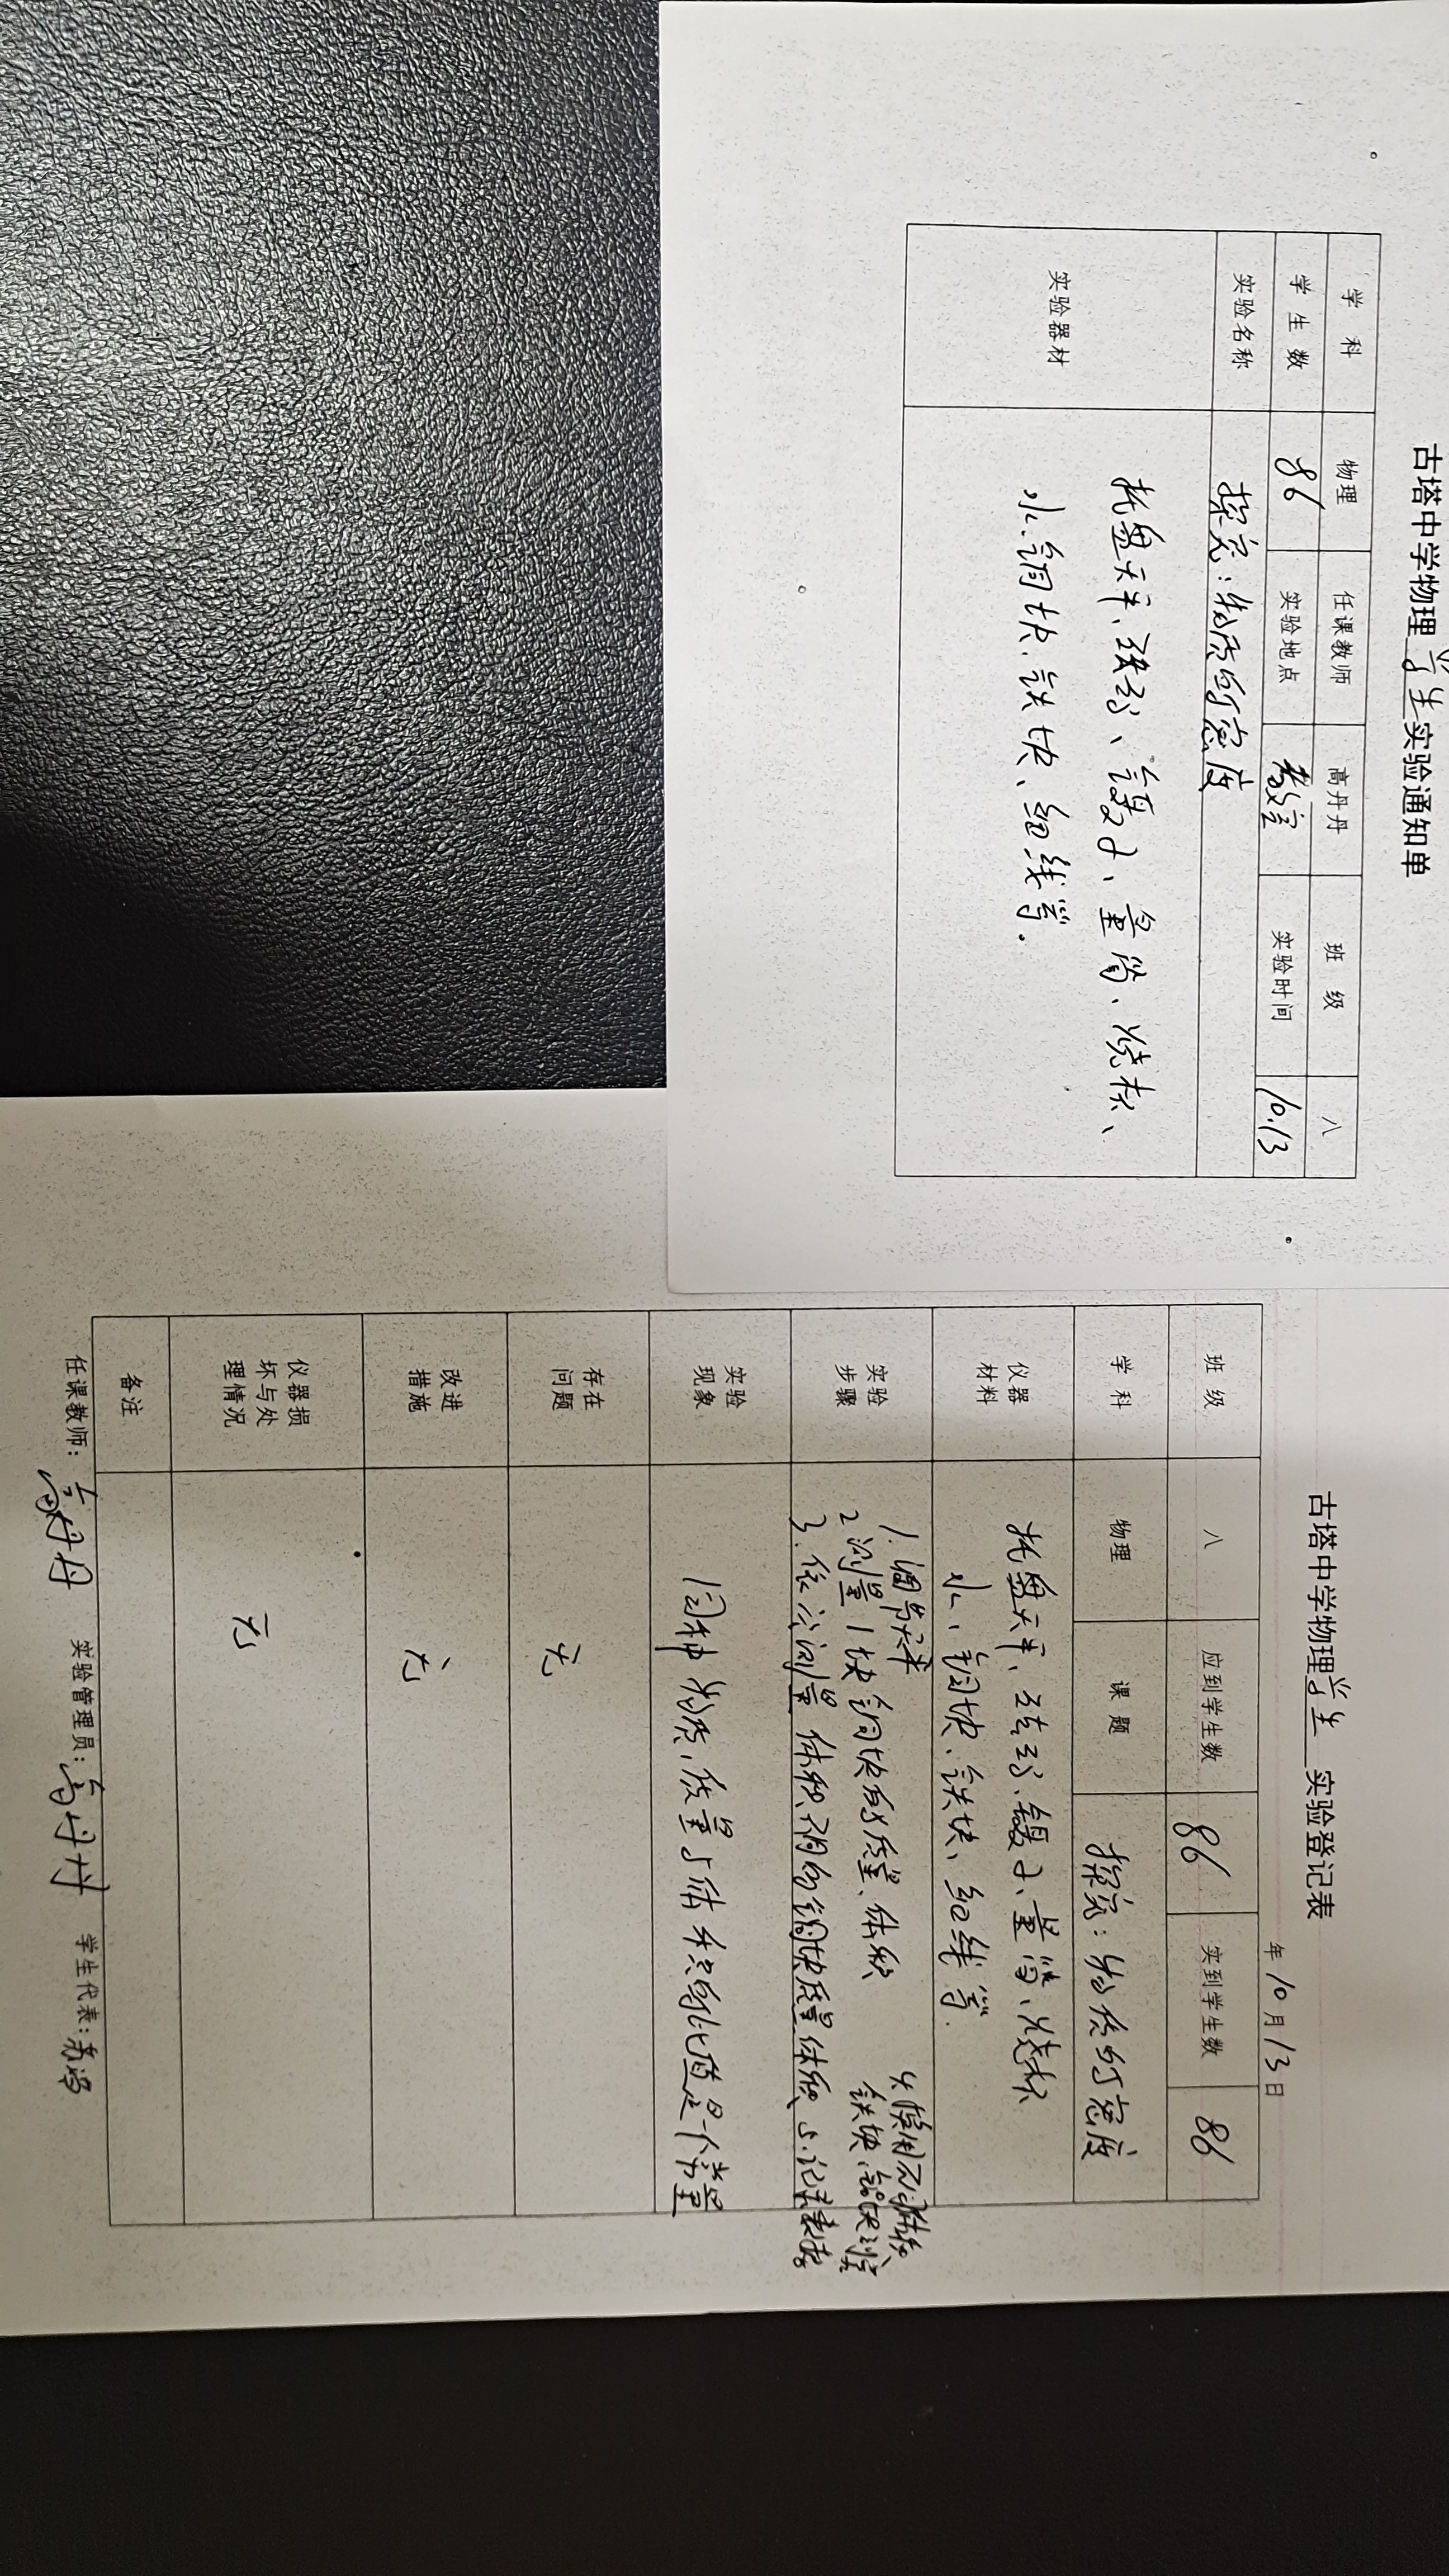 古塔中学物理学生实验通知单
学 科 物理 任课教师 高丹丹 班 级 八
学 生 数 86 实验地点 教室 实验时间 10.13
实验名称 探究:物质的密度
实验器材
托盘天平、砝码、镊子、量筒、烧杯、
水、铜块、铁块、细线等.
古塔中学物理学生 实验登记表
年10月13日
班 级 八 应到学生数 86 实到学生数 86
学 科 物理 课 题 探究:物质的密度
仪器
材料
托盘天平、砝码、镊子、量筒、烧杯
水、铜块、铁块、细线等.
实验
步骤
1.调节天平
2 测量1块铜块的质量、体积
3.依次测量 体积不同的铜块质量、体积
4.换用不同体积
铁块、铝块测量
5.记录表格
实验
现象
同种物质,质量与体积的比值是一个常量
存在
问题
无
改进
措施
无
仪器损
坏与处
理情况
无
备注
任课教师:高丹丹 实验管理员:高丹丹 学生代表: